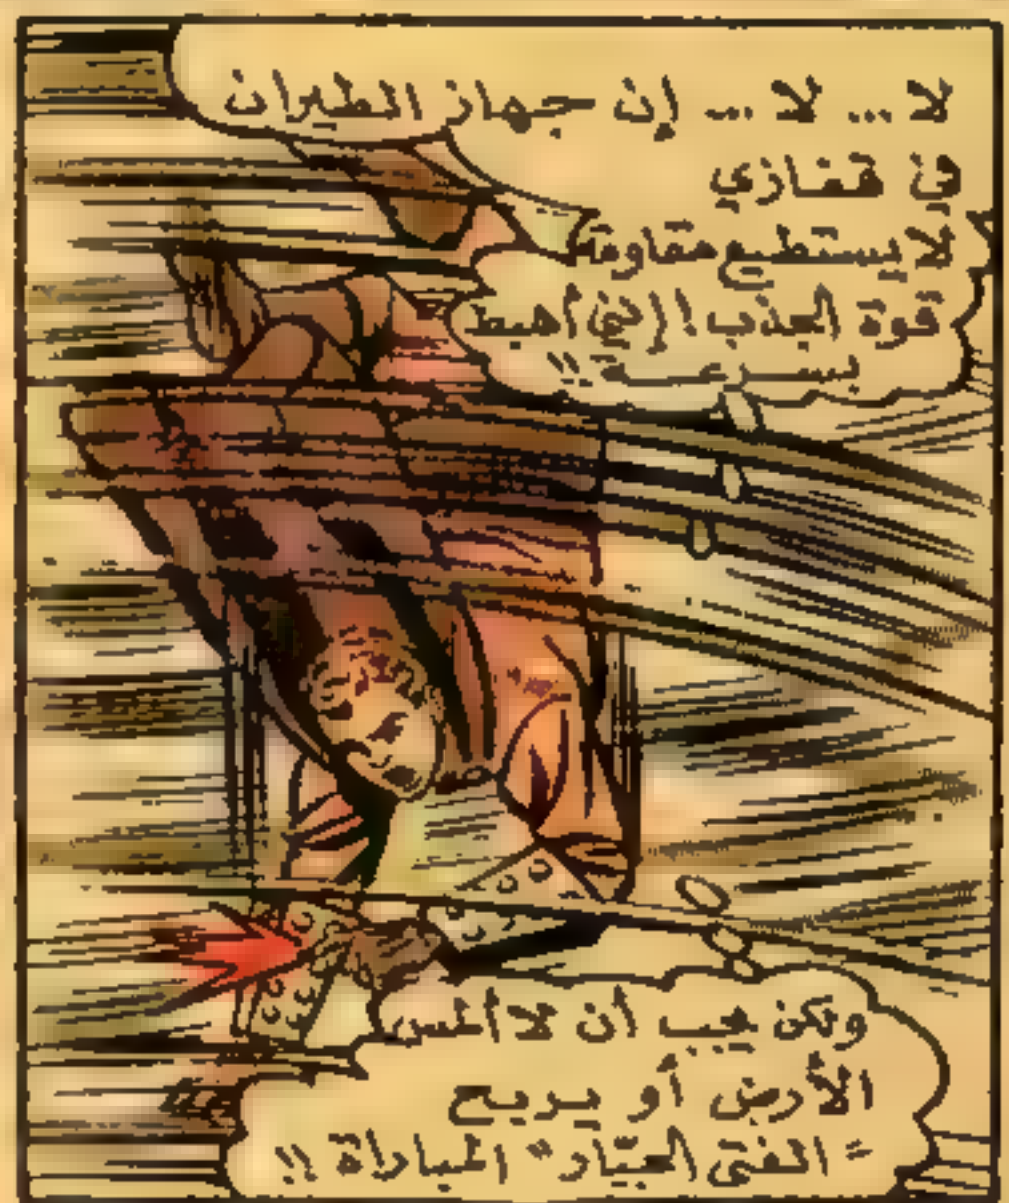 لا ... لا ... إن جهاز الطيران
في قفازي
لا يستطيع مقاومة
قوة الجذب! إنني أهبط
بسرعة!!
ولكن يجب أن لا ألمس
الأرض أو يربح
"الفتى الجبّار" المباراة!!